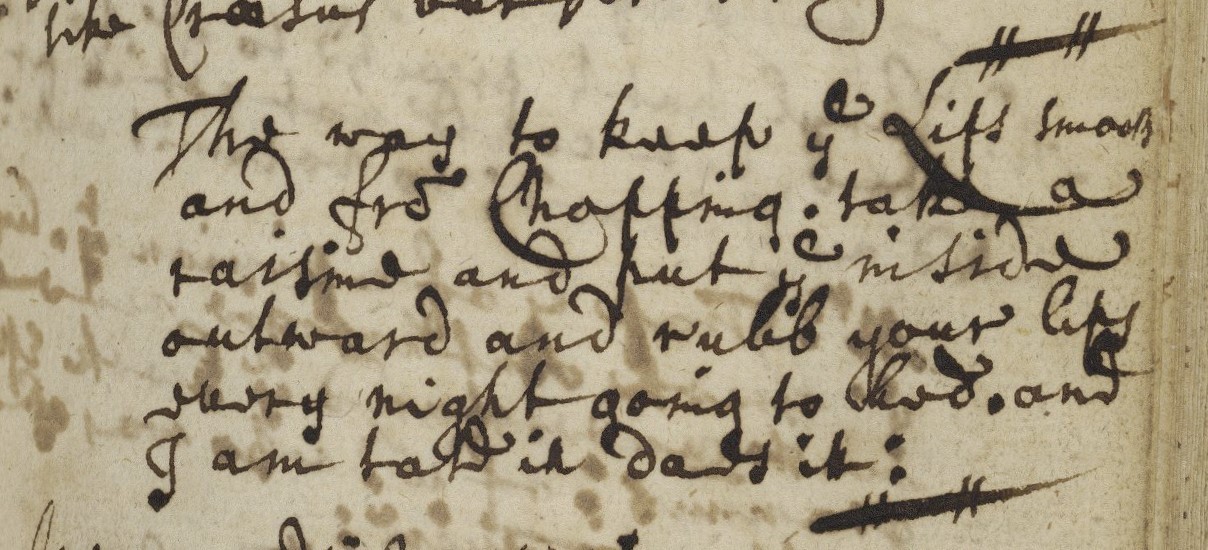 like Croesus
The way to keep yᵉ Lips smooth
and frō Chopping: take a
raisine and put yᵉ inside
outward and rubb your lips
every night going to bed. and
I am told it does it: